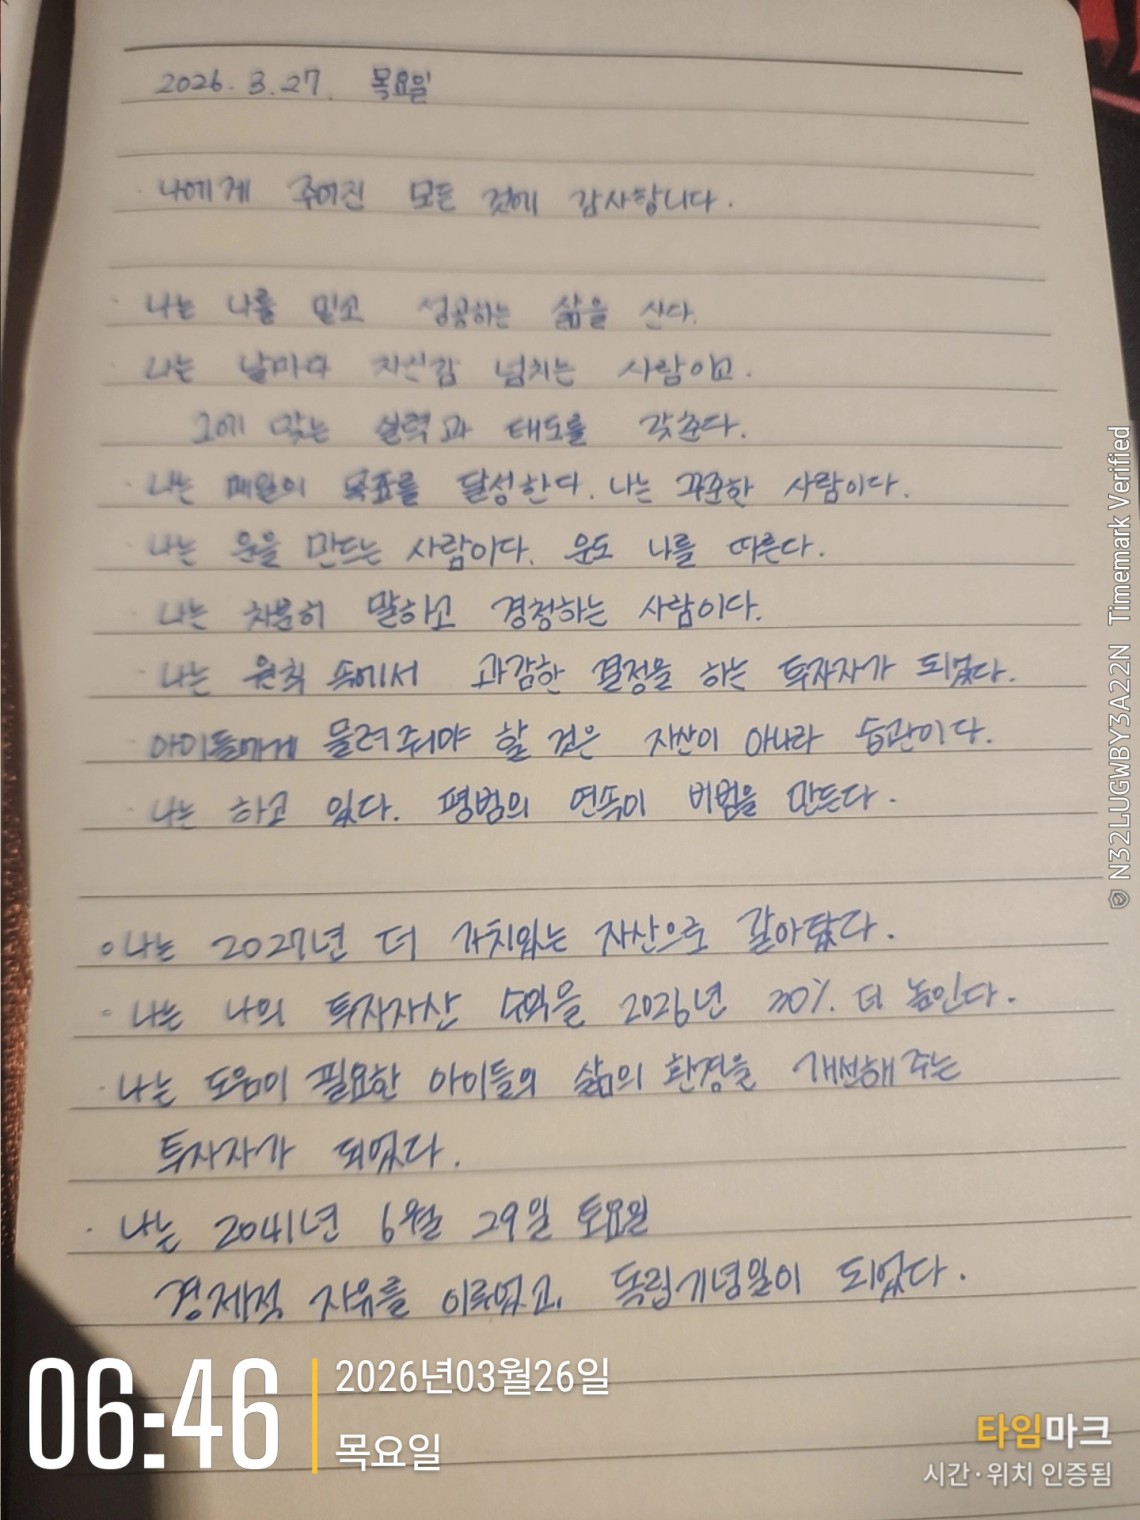 2026. 3. 27. 목요일
· 나에게 주어진 모든 것에 감사합니다.
· 나는 나를 믿고 성공하는 삶을 산다.
· 나는 날마다 자신감 넘치는 사람이고.
그에 맞는 실력과 태도를 갖춘다.
· 나는 매일의 목표를 달성한다. 나는 꾸준한 사람이다.
· 나는 운을 만드는 사람이다. 운도 나를 따른다.
· 나는 차분히 말하고 경청하는 사람이다.
· 나는 원칙 속에서 과감한 결정을 하는 투자자가 되었다.
· 아이들에게 물려줘야 할 것은 자산이 아니라 습관이다.
· 나는 하고 있다. 평범의 연속이 비범을 만든다.
○ 나는 2027년 더 가치있는 자산으로 갈아탔다.
· 나는 나의 투자자산 수익을 2026년 20% 더 높인다.
· 나는 도움이 필요한 아이들의 삶의 환경을 개선해 주는
투자자가 되었다.
· 나는 2041년 6월 29일 토요일
경제적 자유를 이루었고, 독립기념일이 되었다.
06:46
2026년03월26일
목요일
타임마크
시간·위치 인증됨
N32LUGWBY3A22N Timemark Verified